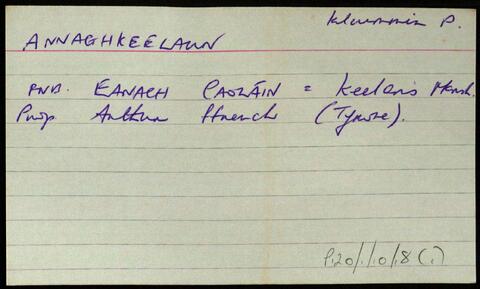 Kilcummin P.
ANNAGHKEELAUN
PNB. EANACH CAOLÁIN = Keelan's Marsh.
Prop Arthur ffrench (Tyrone).
P120/1/10/8(1)